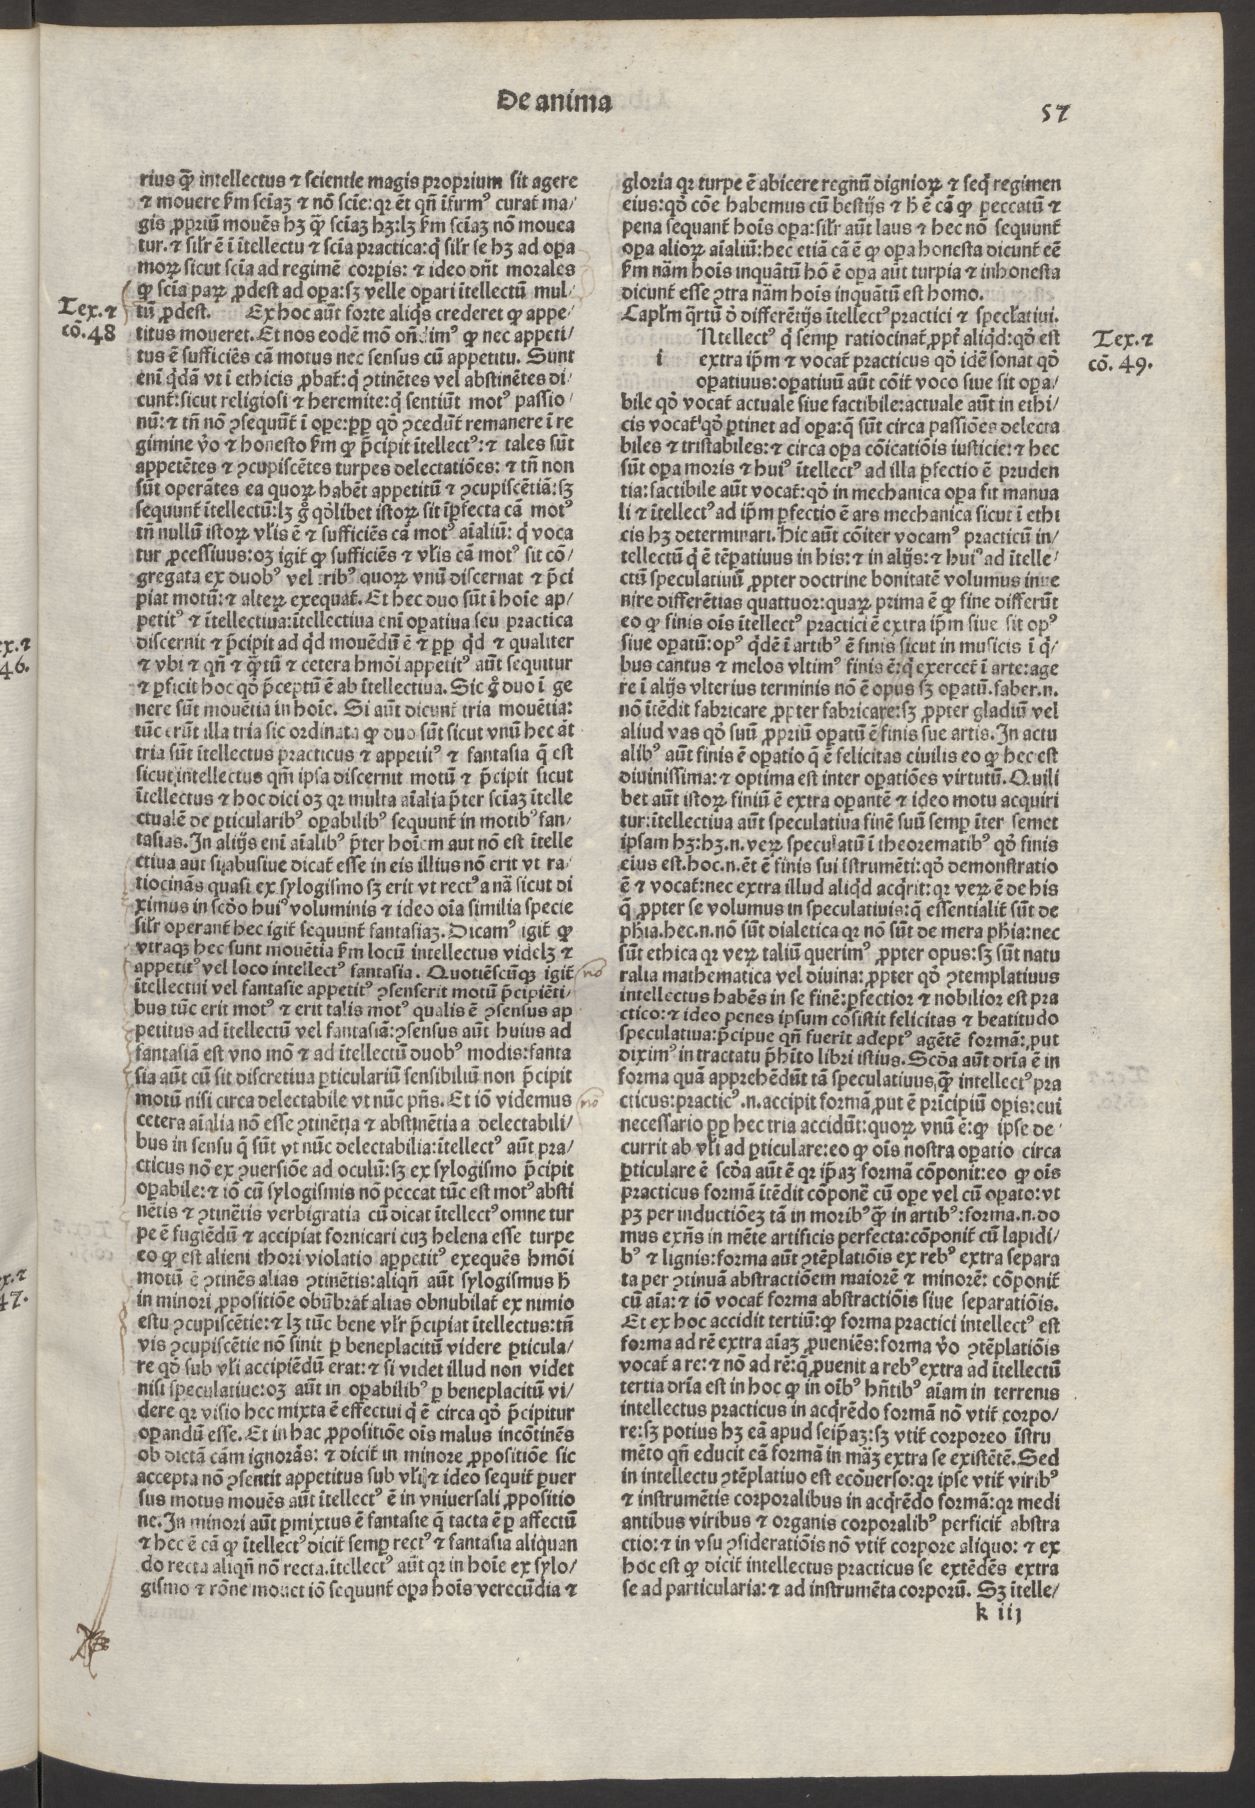 De anima
57
rius qȝ intellectus ⁊ scientie magis proprium sit agere
⁊ mouere km̄ sciaȝ ⁊ nō scie: qr ēt qn̄ ifirmꝰ curat ma/
gis ꝓpriū mouēs hȝ qȝ sciaȝ hȝ: lȝ km̄ sciaȝ nō mouea
tur. ⁊ silr ē ī ītellectu ⁊ scīa practica: q̇ silr se hȝ ad oꝑa
moꝝ sicut scīa ad regimē corꝑis: ⁊ ideo dn̄t morales
ꝙ scīa parꝝ ꝓdest ad oꝑa: sȝ velle oꝑari ītellectū mul/
tū ꝓdest. Ex hoc aūt forte aliqs crederet ꝙ appe/
titus moueret. Et nos eodē mō on̄dimꝰ ꝙ nec appeti/
tus ē sufficiēs cā motus nec sensus cū appetitu. Sunt
eni q̇dā vt ī ethicis ꝓbat: q̇ ꝯtinētes vel abstinētes di/
cunt̄: sicut religiosi ⁊ heremite: q̇ sentiūt motꝰ passio/
nū: ⁊ tn̄ nō ꝯsequūt ī oꝑe: ꝑp qō ꝯcedūt remanere ī re
gimine v̇o ⁊ honesto km̄ ꝙ p̄cipit ītellectꝰ: ⁊ tales sūt
appetētes ⁊ ꝯcupiscētes turpes delectatiōes: ⁊ tn̄ non
sūt operātes ea quoꝝ habēt appetitū ⁊ ꝯcupiscētiā: sȝ
sequunt̄ ītellectū: lȝ g̊ qōlibet istoꝝ sit īꝑfecta cā motꝰ
tn̄ nullū istoꝝ vlis ē ⁊ sufficiēs cā motꝰ aīaliū: q̇ voca
tur ꝓcessiuus: oȝ igit̄ ꝙ sufficiēs ⁊ vlis cā motꝰ sit cō/
gregata ex duobꝰ vel tribꝰ quoꝝ vnū discernat ⁊ p̄ci
piat motū: ⁊ alteꝝ exequat̄. Et hec duo sūt ī hoīe ap/
petitꝰ ⁊ ītellectiua: ītellectiua eni oꝑatiua seu practica
discernit ⁊ p̄cipit ad qd mouēdū ē ⁊ ꝑp qd ⁊ qualiter
⁊ vbi ⁊ qn̄ ⁊ q̄tū ⁊ cetera hmōi appetitꝰ aūt sequitur
⁊ ꝑficit hoc qō p̄ceptū ē ab ītellectiua. Sic g̊ duo ī ge
nere sūt mouētia in hoīe. Si aūt dicunt̄ tria mouētia:
tūc erūt illa tria sic ordinata ꝙ duo sūt sicut vnū hec āt
tria sūt ītellectus practicus ⁊ appetitꝰ ⁊ fantasia q̄ est
sicut intellectus qm̄ ipsa discernit motū ⁊ p̄cipit sicut
ītellectus ⁊ hoc dici oȝ qr multa aīalia p̄ter sciaȝ ītelle
ctualē de ꝑticularibꝰ oꝑabilibꝰ sequunt̄ in motibꝰ fan/
tasias. In alijs eni aīalibꝰ p̄ter hoīem aut nō est ītelle
ctiua aut si abusiue dicat̄ esse in eis illius nō erit vt ra/
tiocinās quasi ex sylogismo sȝ erit vt rectꝰ a nā sicut di
ximus in scōo huiꝰ voluminis ⁊ ideo oīa similia specie
silr operant̄ hec igit̄ sequunt̄ fantasiaȝ. Dicamꝰ igit̄ ꝙ
vtraqȝ hec sunt mouētia km̄ locū intellectus videlȝ ⁊
appetitꝰ vel loco intellectꝰ fantasia. Quotiēscūqȝ igit̄
ītellectui vel fantasie appetitꝰ ꝯsenserit motū p̄cipiēti/
bus tūc erit motꝰ ⁊ erit talis motꝰ qualis ē ꝯsensus ap
petitus ad ītellectū vel fantasiā: ꝯsensus aūt huius ad
fantasiā est vno mō ⁊ ad ītellectū duobꝰ modis: fanta
sia aūt cū sit discretiua ꝑticulariū sensibiliū non p̄cipit
motū nisi circa delectabile vt nūc pn̄s. Et iō videmus
cetera aīalia nō esse ꝯtinētia ⁊ abstinētia a delectabili/
bus in sensu q̄ sūt vt nūc delectabilia: ītellectꝰ aūt pra/
cticus nō ex ꝯuersiōe ad oculū: sȝ ex sylogismo p̄cipit
oꝑabile: ⁊ iō cū sylogismis nō peccat tūc est motꝰ absti
nētis ⁊ ꝯtinētis verbigratia cū dicat ītellectꝰ omne tur
pe ē fugiēdū ⁊ accipiat fornicari cuȝ helena esse turpe
eo ꝙ est alieni thori violatio appetitꝰ exequēs hmōi
motū ē ꝯtinēs alias ꝯtinētis: aliqn̄ aūt sylogismus h̄
in minori ꝓpositiōe obūbrat̄ alias obnubilat̄ ex nimio
estu ꝯcupiscētie: ⁊ lȝ tūc bene vlr p̄cipiat ītellectus: tn̄
vis ꝯcupiscētie nō sinit ꝑ beneplacitū videre ꝑticula/
re qō sub vli accipiēdū erat: ⁊ si videt illud non videt
nisi speculatiue: oȝ aūt in oꝑabilibꝰ ꝑ beneplacitū vi/
dere qr visio hec mixta ē effectui q̇ ē circa qō p̄cipitur
oꝑandū esse. Et in hac ꝓpositiōe oīs malus incōtinēs
ob dictā cām ignorās: ⁊ dicit̄ in minore ꝓpositiōe sic
accepta nō ꝯsentit appetitus sub vli ⁊ ideo sequit̄ ꝑuer
sus motus mouēs aūt ītellectꝰ ē in vniuersali ꝓpositio
ne. In minori aūt ꝑmixtus ē fantasie q̄ tacta ē ꝑ affectū
⁊ hec ē cā ꝙ ītellectꝰ dicit̄ semꝑ rectꝰ ⁊ fantasia aliquan
do recta aliqn̄ nō recta. ītellectꝰ aūt qr in hoīe ex sylo/
gismo ⁊ rōne mouet iō sequunt̄ oꝑa hoīs verecūdia ⁊
Tex. ⁊
cō. 48
ex. ⁊
46.
ex. ⁊
47.
no
no
gloria qr turpe ē abicere regnū digniorꝝ ⁊ seq̇ regimen
eius: qō cōe habemus cū bestijs ⁊ h̄ ē cā ꝙ peccatū ⁊
pena sequant̄ hoīs oꝑa: silr aūt laus ⁊ hec nō sequunt̄
oꝑa alioꝝ aīaliū: hec etiā cā ē ꝙ oꝑa honesta dicunt̄ eē
km̄ nām hoīs inquātū hō ē oꝑa aūt turpia ⁊ inhonesta
dicunt̄ esse ꝯtra nām hoīs inquātū est homo.
Caplm q̄rtū ō differētijs ītellectꝰ practici ⁊ speclatiui.
i
Ntellectꝰ q̇ semꝑ ratiocinat̄ ꝓpt̄ aliqd: qō est
extra ipm ⁊ vocat̄ practicus qō idē sonat qō
oꝑatiuus: oꝑatiuū aūt cōit̄ voco siue sit oꝑa/
bile qō vocat̄ actuale siue factibile: actuale aūt in ethi/
cis vocat̄ qō ꝑtinet ad oꝑa: q̄ sūt circa passiōes delecta
biles ⁊ tristabiles: ⁊ circa oꝑa cōicatiōis iusticie: ⁊ hec
sūt oꝑa moris ⁊ huiꝰ ītellectꝰ ad illa ꝑfectio ē pruden
tia: factibile aūt vocat̄: qō in mechanica oꝑa fit manua
li ⁊ ītellectꝰ ad ipm ꝑfectio ē ars mechanica sicut ī ethi
cis hȝ determinari. Hic aūt cōiter vocamꝰ practicū in/
tellectū q̇ ē tēꝑatiuus in his: ⁊ in alijs: ⁊ huiꝰ ad ītelle/
ctū speculatiuū ꝓpter doctrine bonitatē volumus inue
nire differētias quattuor: quaꝝ prima ē ꝙ fine differūt
eo ꝙ finis oīs ītellectꝰ practici ē extra ipm siue sit opꝰ
siue oꝑatū: opꝰ q̇dē ī artibꝰ ē finis sicut in musicis ī q̇/
bus cantus ⁊ melos vltimꝰ finis ē: q̇ exercet̄ ī arte: age
re ī alijs vlterius terminis nō ē opus sȝ oꝑatū. faber. n.
nō ītēdit fabricare ꝓpter fabricare: sȝ ꝓpter gladiū vel
aliud vas qō suū ꝓpriū oꝑatū ē finis sue artis. In actu
alibꝰ aūt finis ē oꝑatio q̄ ē felicitas ciuilis eo ꝙ hec est
diuinissima: ⁊ optima est inter oꝑatiōes virtutū. Quili
bet aūt istoꝝ finiū ē extra oꝑantē ⁊ ideo motu acquiri
tur: ītellectiua aūt speculatiua finē suū semꝑ īter semet
ipsam hȝ: hȝ. n. veꝝ speculatū ī theorematibꝰ qō finis
eius est. hoc. n. ēt ē finis sui īstrumēti: qō demonstratio
ē ⁊ vocat̄: nec extra illud aliqd acq̇rit: qr veꝝ ē de his
q̄ ꝓpter se volumus in speculatiuis: q̄ essentialit̄ sūt de
phia. hec. n. nō sūt dialetica qr nō sūt de mera phia: nec
sūt ethica qr veꝝ taliū querimꝰ ꝓpter opus: sȝ sūt natu
ralia mathematica vel diuina: ꝓpter qō ꝯtemplatiuus
intellectus habēs in se finē: ꝑfectior ⁊ nobilior est pra
ctico: ⁊ ideo penes ipsum cōsistit felicitas ⁊ beatitudo
speculatiua: p̄cipue qn̄ fuerit adeptꝰ agētē formā: ꝓut
diximꝰ in tractatu p̄hīto libri istius. Scōa aūt dr̄ia ē in
forma quā apprehēdūt tā speculatiuus qȝ intellectꝰ pra
cticus: practicꝰ. n. accipit formā ꝓut ē prīcipiū oꝑis: cui
necessario ꝑp hec tria accidūt: quoꝝ vnū ē: ꝙ ipse de/
currit ab vli ad ꝑticulare: eo ꝙ oīs nostra oꝑatio circa
ꝑticulare ē scōa aūt ē qr ipaȝ formā cōponit: eo ꝙ oīs
practicus formā ītēdit cōponē cū oꝑe vel cū oꝑato: vt
pȝ per inductiōeȝ tā in moribꝰ qȝ in artibꝰ: forma. n. do
mus exn̄s in mēte artificis perfecta: cōponit̄ cū lapidi/
bꝰ ⁊ lignis: forma aūt ꝯtēplatiōis ex rebꝰ extra separa
ta per ꝯtinuā abstractiōem maiorē ⁊ minorē: cōponit̄
cū aīa: ⁊ iō vocat̄ forma abstractiōis siue separatiōis.
Et ex hoc accidit tertiū: ꝙ forma practici intellectꝰ est
forma ad rē extra aīaȝ ꝓueniēs: forma v̇o ꝯtēplatiōis
vocat̄ a re: ⁊ nō ad rē: q̄ ꝓuenit a rebꝰ extra ad ītellectū
tertia dr̄ia est in hoc ꝙ in oībꝰ hn̄tibꝰ aīam in terrenis
intellectus practicus in acq̇rēdo formā nō vtit̄ corpo/
re: sȝ potius hȝ eā apud seipaȝ: sȝ vtit̄ corporeo īstru
mēto qn̄ educit eā formā in māȝ extra se existētē. Sed
in intellectu ꝯtēplatiuo est ecōuerso: qr ipse vtit̄ viribꝰ
⁊ instrumētis corporalibus in acq̇rēdo formā: qr medi
antibus viribus ⁊ organis corporalibꝰ perficit̄ abstra
ctio: ⁊ in vsu ꝯsideratiōis nō vtit̄ corpore aliquo: ⁊ ex
hoc est ꝙ dicit̄ intellectus practicus se extēdēs extra
se ad particularia: ⁊ ad instrumēta corporū. Sȝ ītelle/
Tex. ⁊
cō. 49.
k iij